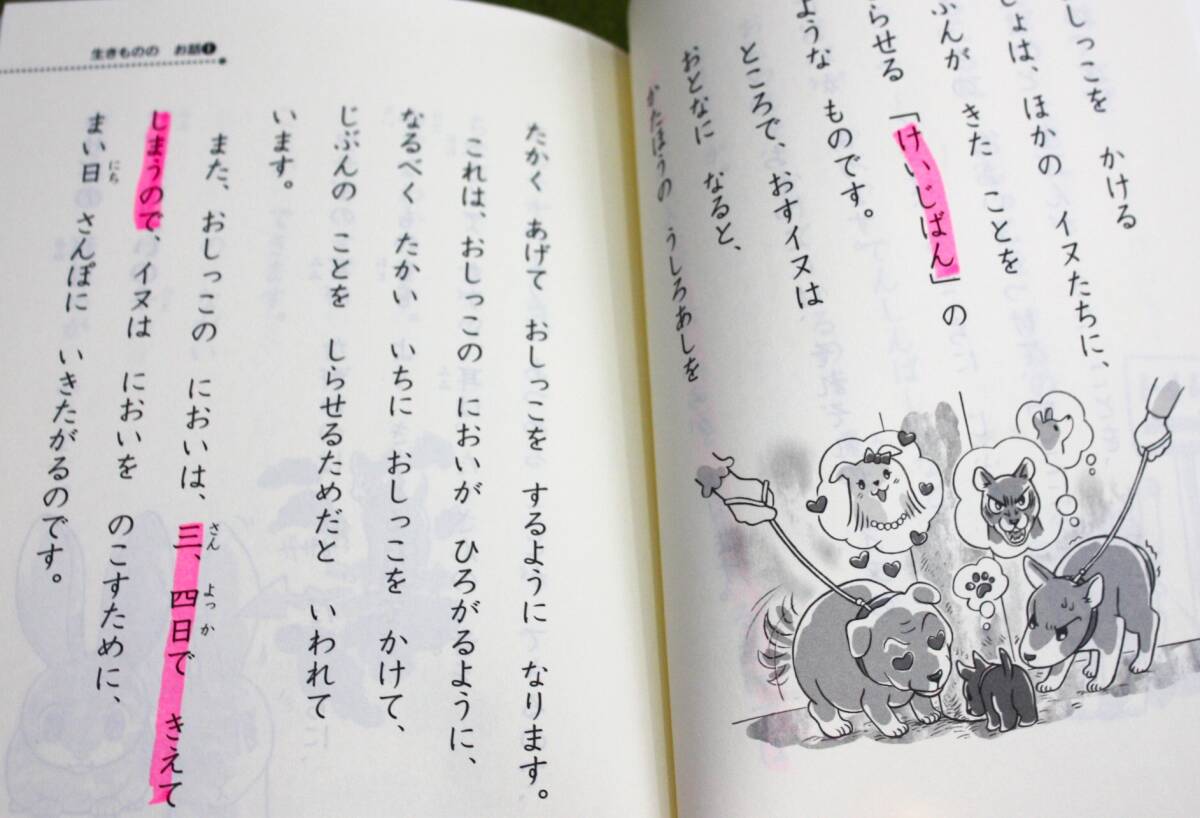 おしっこを　かける
しょは、ほかの　イヌたちに、
ぶんが　きた　ことを
らせる　「けいじばん」の
ような　ものです。
ところで、おすイヌは
おとなに　なると、
かたほうの　うしろあしを
生きものの　お話❶
たかく　あげて　おしっこを　するように　なります。
これは、おしっこの　においが　ひろがるように、
なるべく　たかい　いちに　おしっこを　かけて、
じぶんの　ことを　しらせるためだと　いわれて
います。
また、おしっこの　においは、三、四日で　きえて
さん　よっか
しまうので、イヌは　においを　のこすために、
まい日　さんぽに　いきたがるのです。
にち